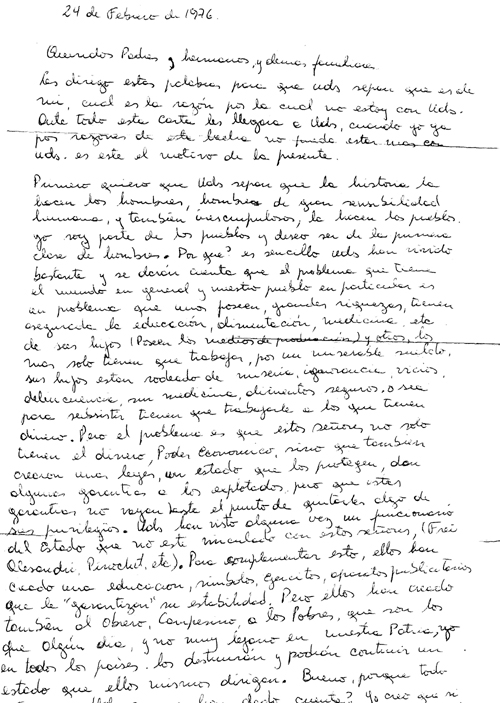 24 de Febrero de 1976.
Queridos Padres, y hermanos, y demas familiares
Les dirigo estas palabras para que uds sepan que es de
mi, cual es la razón por la cual no estoy con Uds.
Ante todo esta carta les llegara a Uds, cuando yo ya
por razones de esta lucha no pueda estar mas con
uds. es este el motivo de la presente.
Primero quiero que Uds sepan que la historia la
hacen los hombres, hombres de gran sensibilidad
humana, y también inescrupulosos, la hacen los pueblos.
yo soy parte de los pueblos y deseo ser de la primera
clase de hombres. Por que? es sencillo uds han vivido
bastante y se darán cuenta que el problema que tiene
el mundo en general y nuestro pueblo en particular es
un problema que unos poseen, grandes riquezas, tienen
asegurada la educación, alimentación, medicina etc
de sus hijos (Poseen los medios de producción) y otros, los
mas solo tienen que trabajar, por un miserable sueldo,
sus hijos estan rodeado de miseria, ignorancia, vicios,
delincuencia, sin medicina, alimentos seguros, o sea
para subsistir tienen que trabajarle a los que tienen
dinero. Pero el problema es que estos señores no solo
tienen el dinero, Poder Economico, sino que también
crearon unas leyes, un estado que los protegen, dan
algunas garantias a los explotados, pero que estas
garantias no vayan hasta el punto de quitarles algo de
sus privilegios. Uds han visto alguna vez un funcionario
del Estado que no esté vinculado con estos señores, (Frei
Alesandri, Pinochet, etc). Para complementar esto, ellos han
creado una educacion, simbolos, Ejercitos, aparatos publicitarios
que le "garantizan" su estabilidad. Pero ellos han creado
también al Obrero, Campesino, a los Pobres, que son los
que algún dia, y no muy lejano en nuestra Patria, yo
en todos los países. los destruirán y podrán contruir un
estado que ellos mismos dirigan. Bueno, porque todo
dado cuenta? Yo creo que si